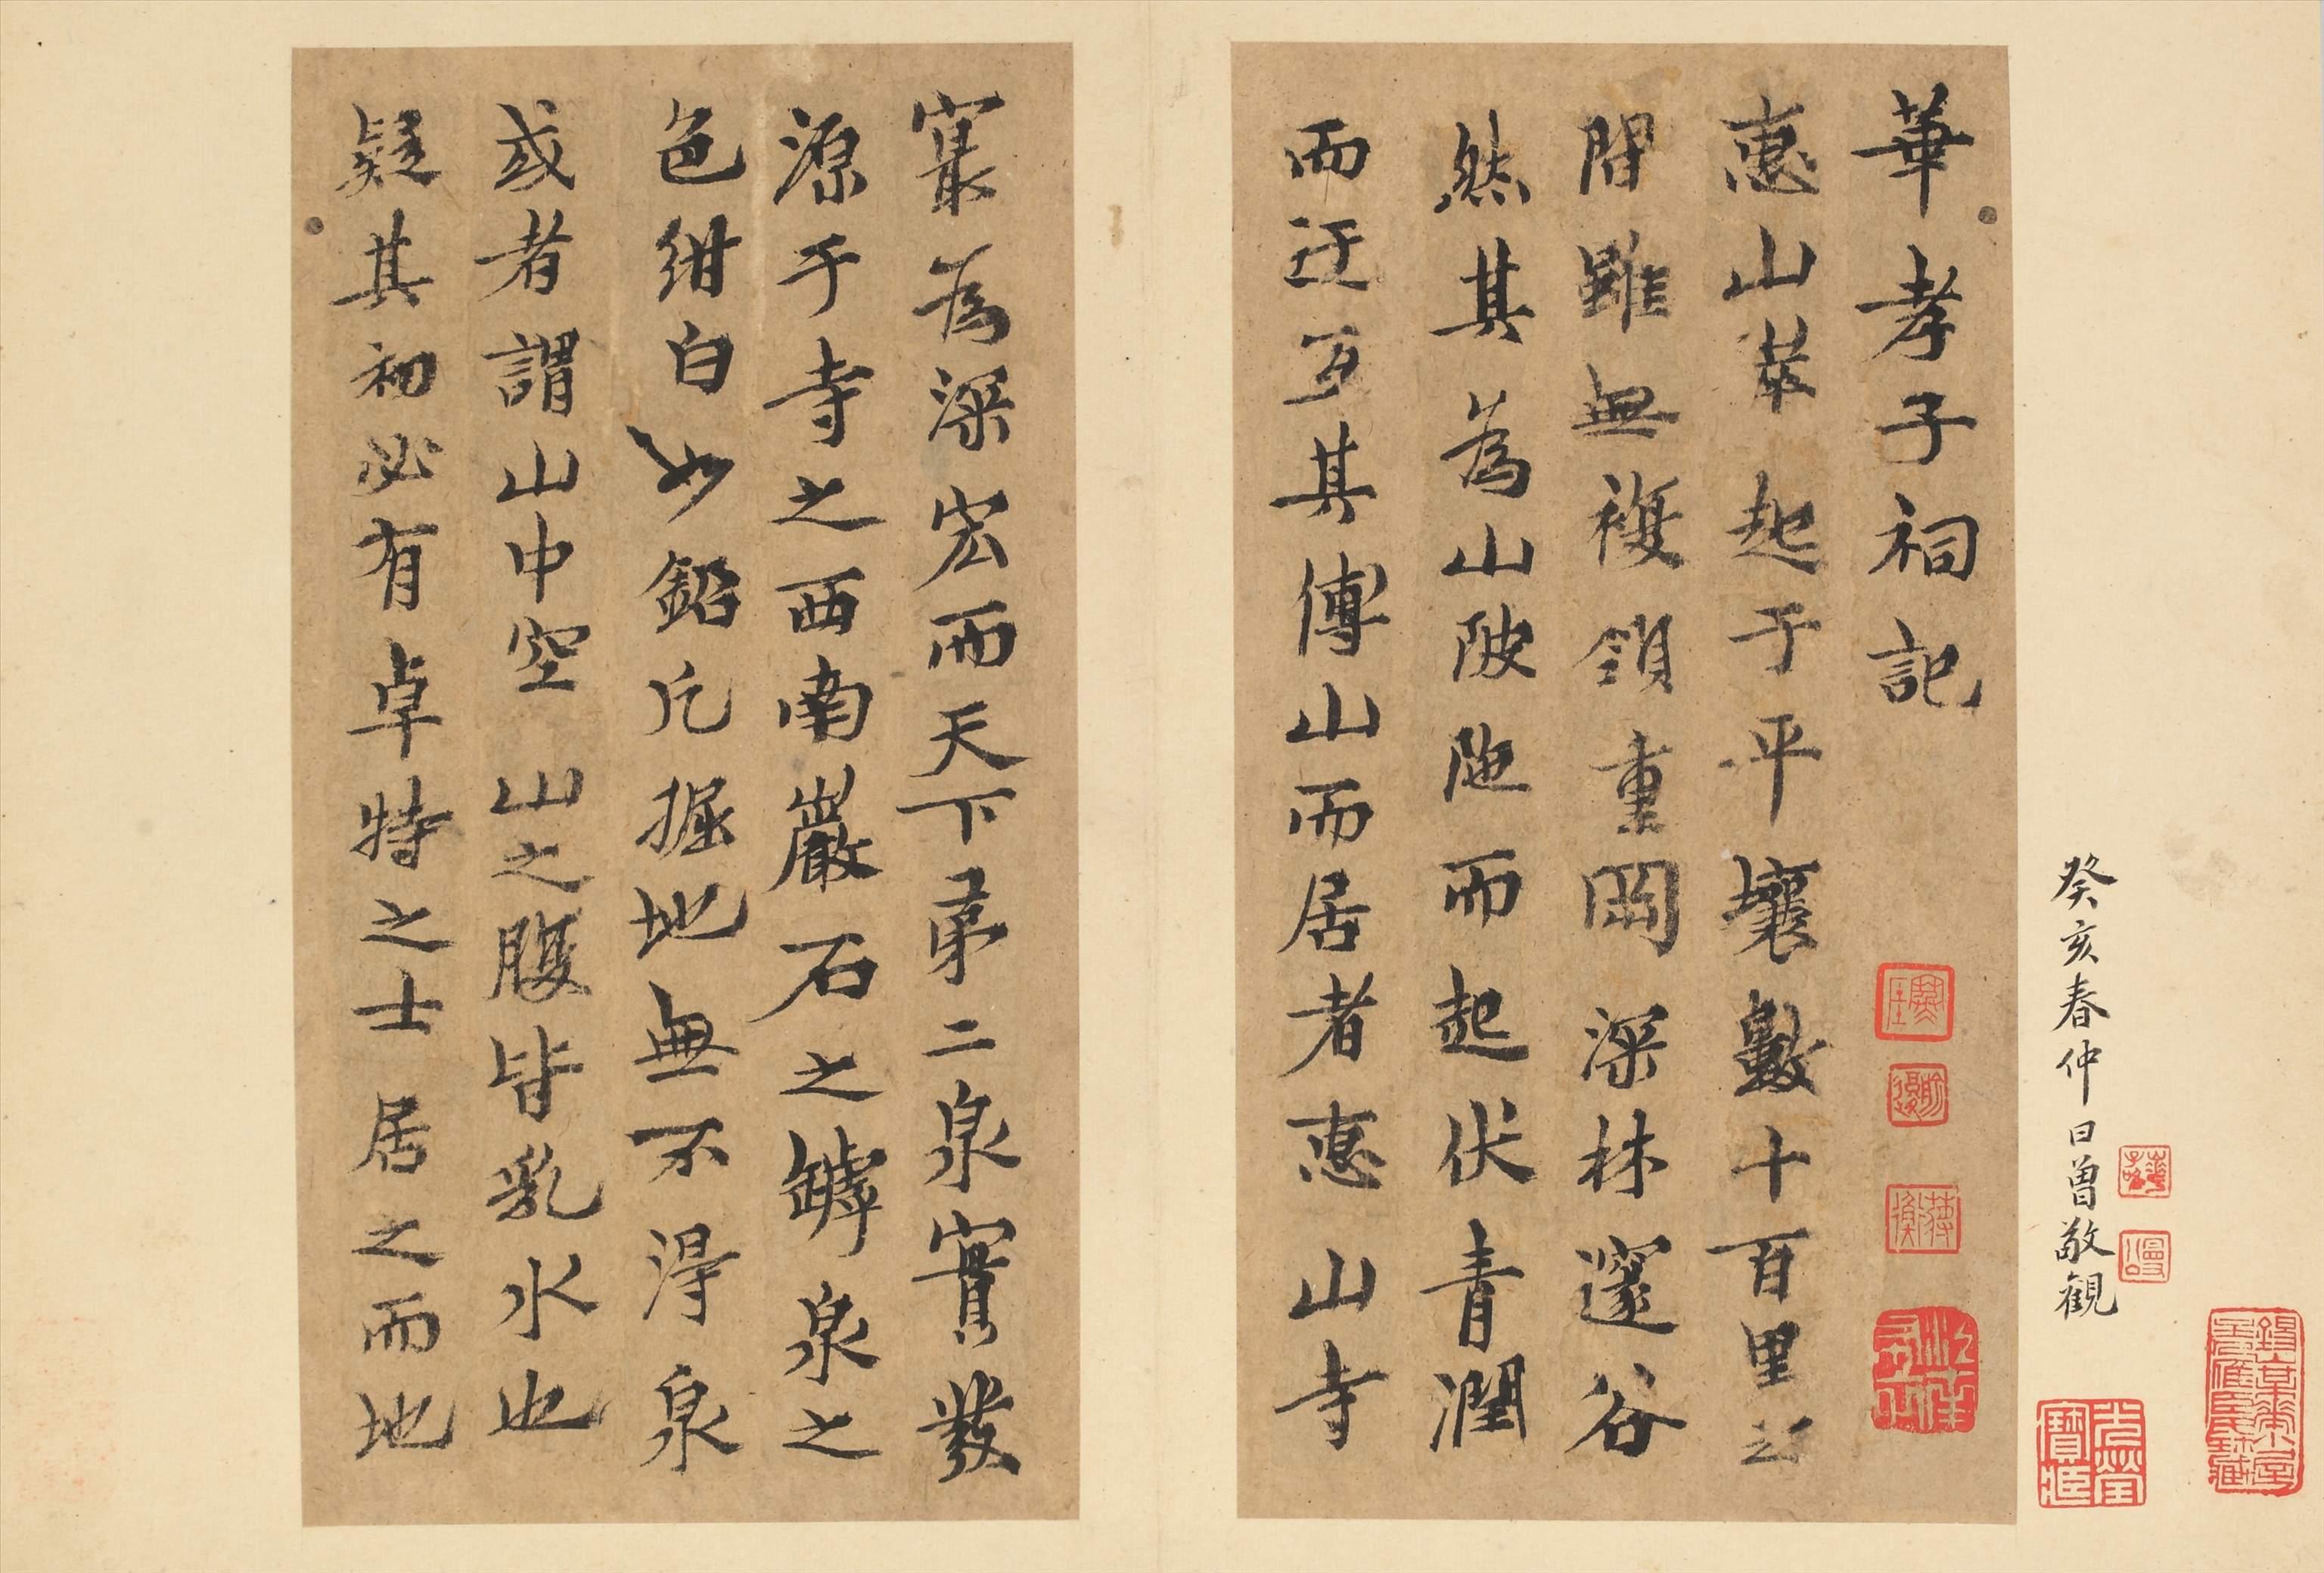 癸亥春仲日曾敬觀
華孝子祠記
惠山崒起于平壤數十百里之
間雖無複領重岡深林邃谷
然其為山陂陁而起伏青潤
而迂互其傅山而居者惠山寺
寔為深宏而天下苐二泉實發
源于寺之西南巖石之罅泉之
色紺白如鉛凡掘地無不得泉
或者謂山中空山之腹皆乳水也
疑其初必有卓特之士居之而地